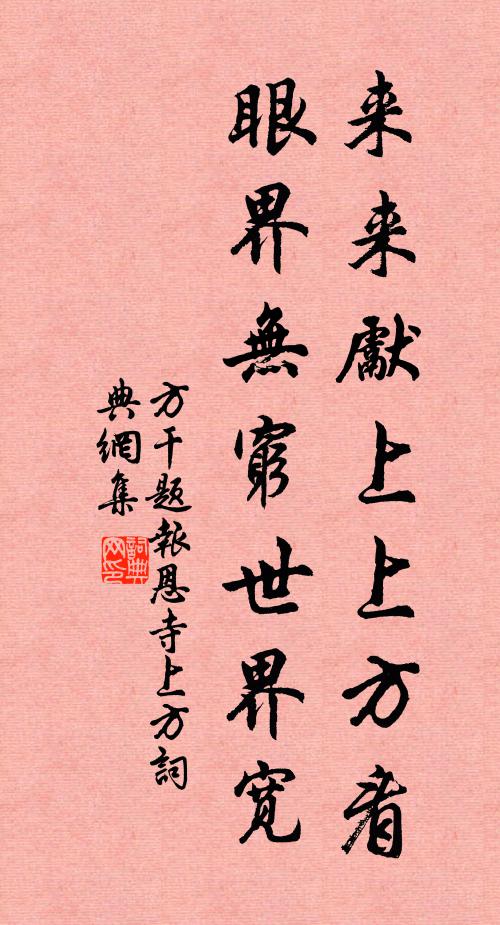 来来獻上上方看
眼界無窮世界寬
方干题報恩寺上方詞
典網集
詞典
网印